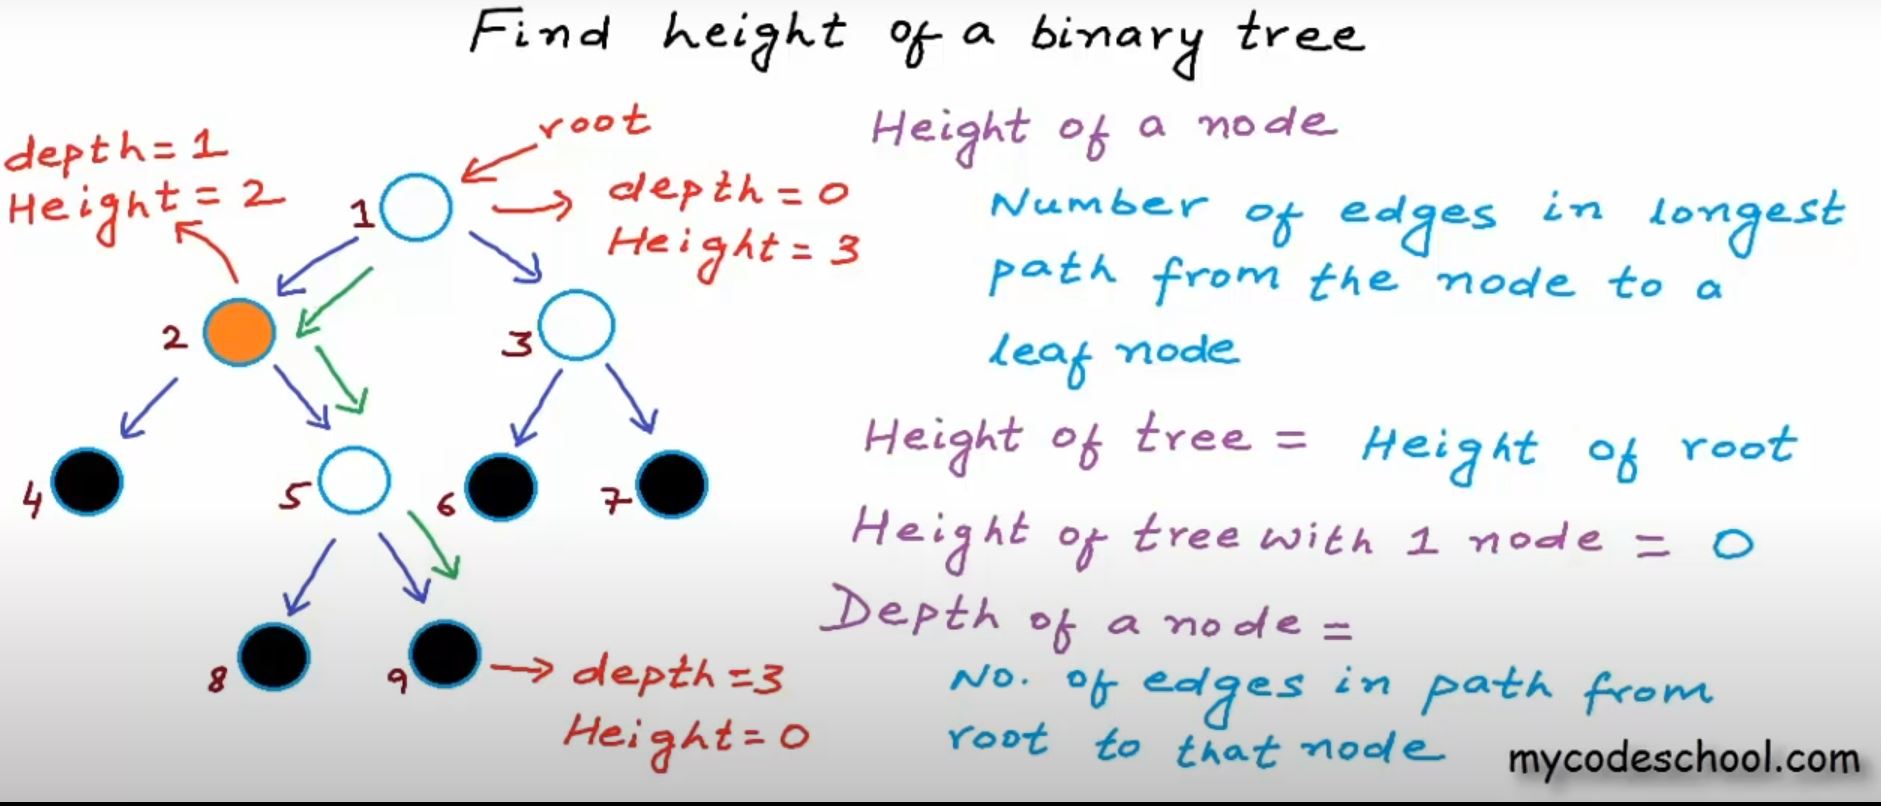 Find height of a binary tree
depth = 1
Height = 2
root
depth = 0
Height = 3
1
2
3
4
5
6
7
8
9
depth = 3
Height = 0
Height of a node
Number of edges in longest
path from the node to a
leaf node
Height of tree = Height of root
Height of tree with 1 node = 0
Depth of a node =
No. of edges in path from
root to that node
mycodeschool.com